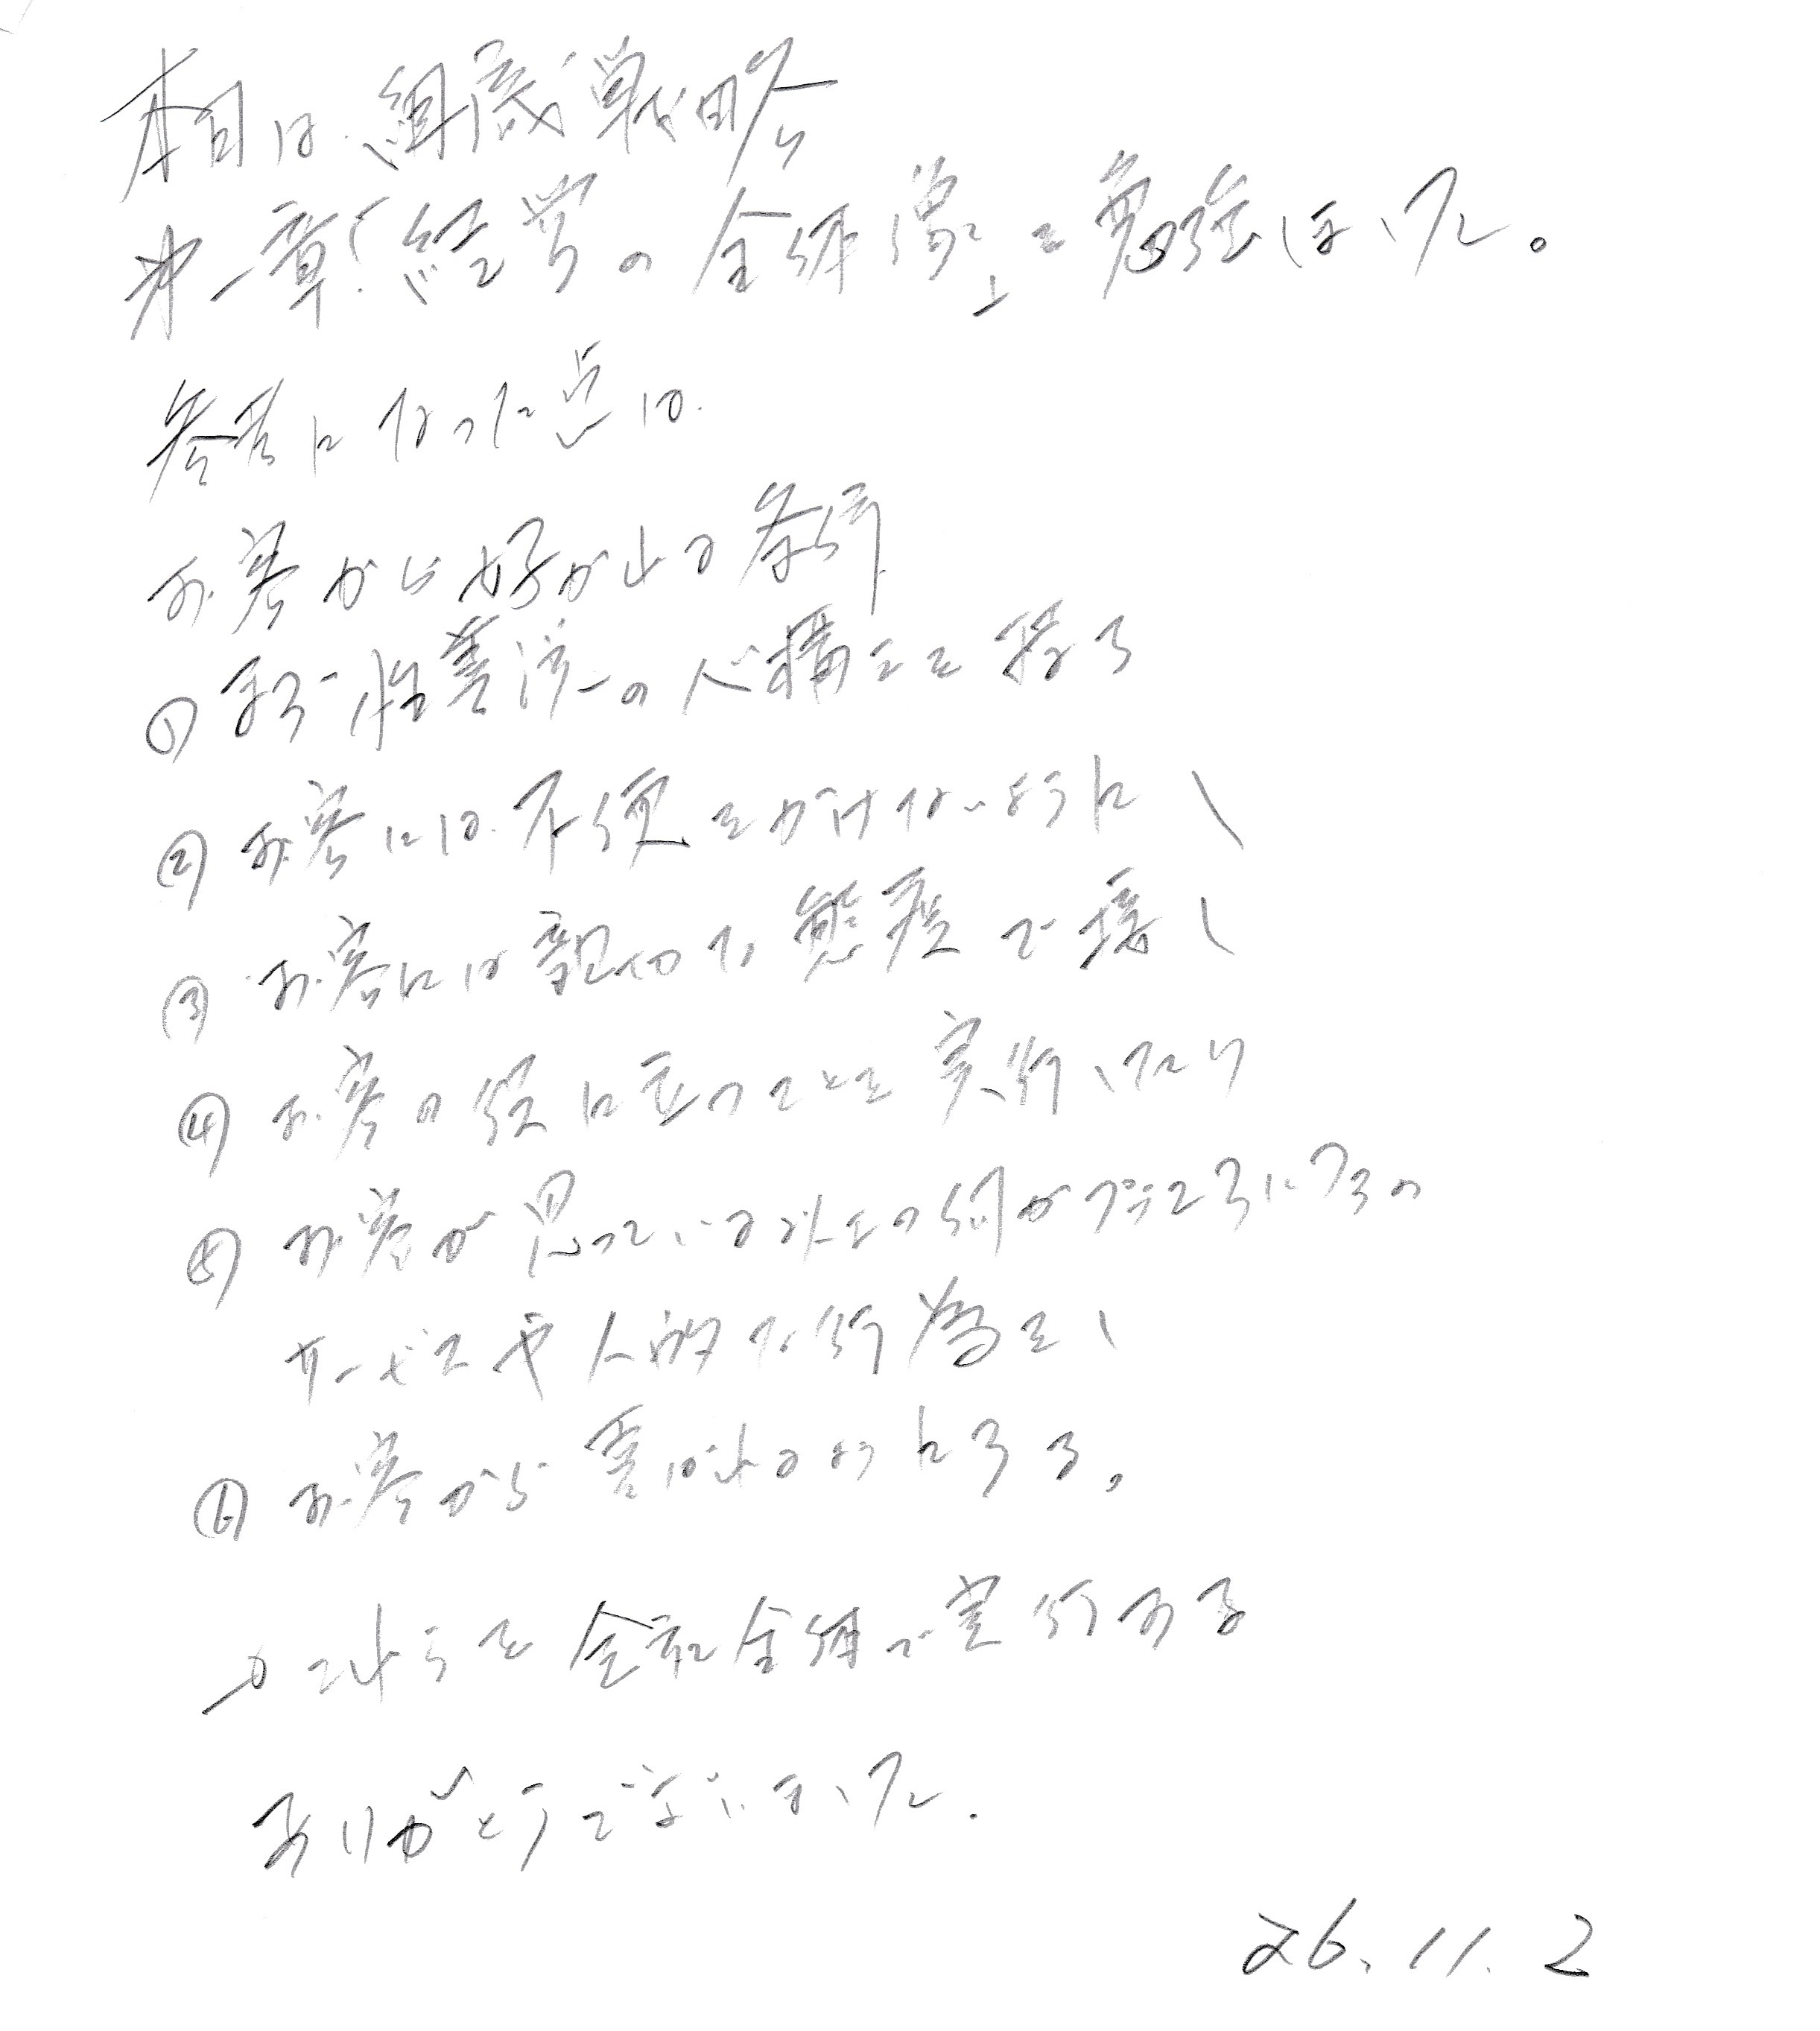 本日は、組織戦略
第一章「経営の全体像」を勉強しました。
参考になった点は、
お客から好かれる条件
① まず性善説の心構えを持ち
② お客には不便をかけないようにし
③ お客には親切な態度で接し
④ お客の役に立つことを実行したり
⑤ お客が思っている以上の何かプラスになるの
サービスや人的な行為をし
⑥ お客から喜ばれるようにする。
→ これらを会社全体で実行する
ありがとうございました。
26.11.2